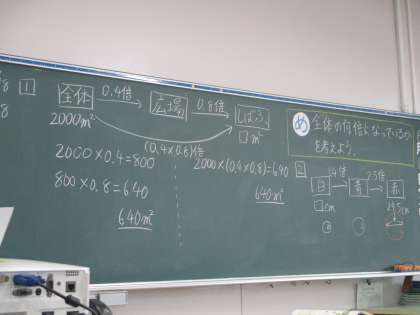 1
全体 0.4倍 広場 0.8倍 しばふ
2000m² □m²
(0.4×0.8)倍
2000×0.4=800
800×0.8=640
640m²
2000×(0.4×0.8)=640
640m²
め 全体の何倍になっているか
を考えよう。
2
白 青 2.5倍 赤
□cm